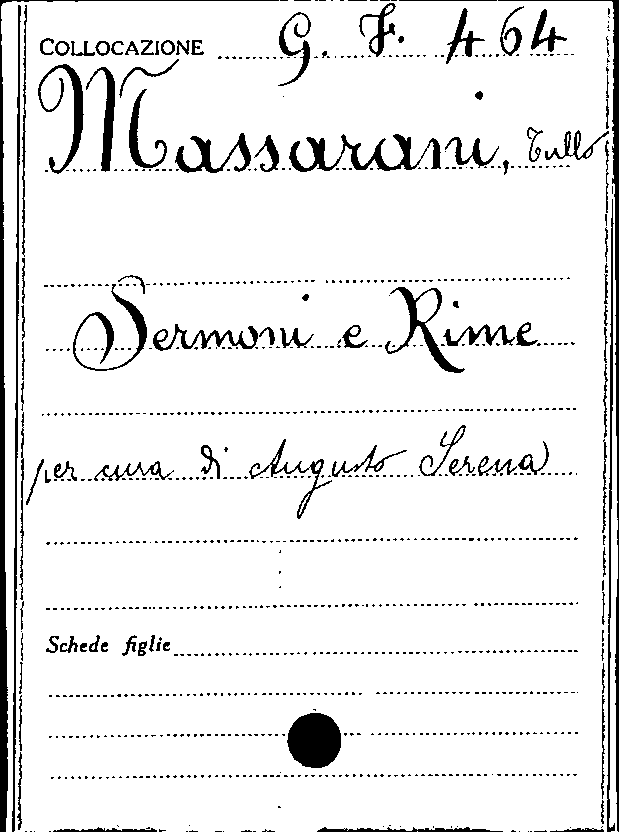 COLLOCAZIONE G. F. 464
Massarani, Tullo
Sermoni e Rime
per cura di Augusto Serena
Schede figlie